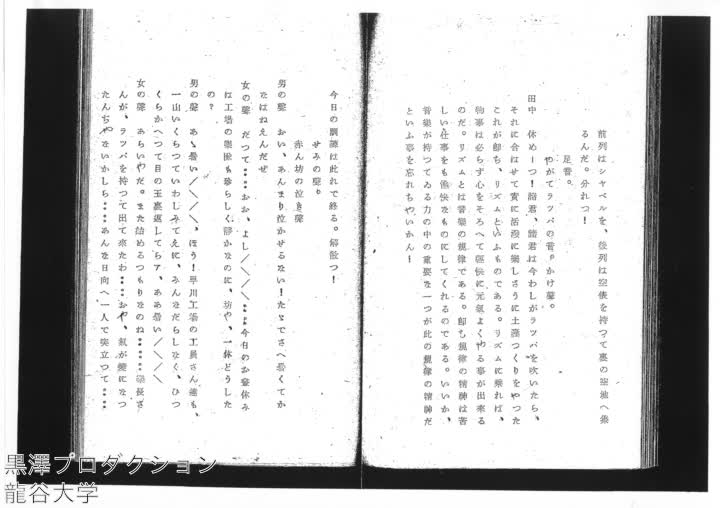 前列はシヤベルを、後列は空俵を持つて裏の空地へ集
るんだ。分れつ！
足音。
やがてラツパの音。かけ聲。
田中　休めーつ！諸君、諸君は今わしがラツパを吹いたら、
それに合はせて實に活潑に樂しさうに土俵つくりをやつた
これが卽ち、リズムといふものである。リズムに乘れば、
物事は必らず心をそろへて愉快に元氣よくやる事が出來る
のだ。リズムとは音樂の規律である。卽ち規律の精神は苦
しい仕事をも愉快なものにしてくれるのである。いいか、
音樂が持つてゐる力の中の重要な一つが此の規律の精神だ
といふ事を忘れちやいかん！
今日の訓練は此れで終る。解散つ！
せみの聲。
赤ん坊の泣き聲
男の聲　おい、あんまり泣かせるない！たゞでさへ暑くてか
なはねえんだぜ
女の聲　だつて‥‥おお、よし／＼／＼‥‥今日のお晝休み
は工場の機械も珍らしく靜かなのに、坊や、一体どうした
の？
男の聲　あゝ暑い／＼／＼、ほう！早川工場の工員さん達も、
一山いくらつていわしみてえに、みんなだらしなく、ひつ
くらかへつて目の玉裏返してらア、ああ暑い／＼／＼
女の聲　あらいやだ。また詰めるつもりなのね‥‥樂長さ
んが、ラツパを持つて出て來たわ‥‥おや、氣が變になつ
たんぢやないかしら‥‥あんな日向へ一人で突立つて‥‥
黒澤プロダクション
龍谷大学